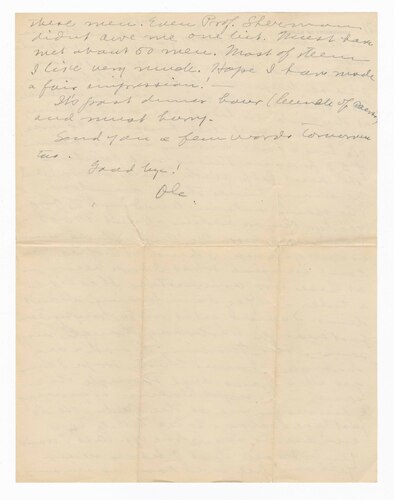 these men. Even Prof. Sherman
didn't awe me one bit. Must have
met about 50 men. Most of them
I like very much. Hope I have made
a fair impression!
Its past dinner hour (
and must hurry.
Send you a few words tomorrow
too.
Good bye!
Ole.